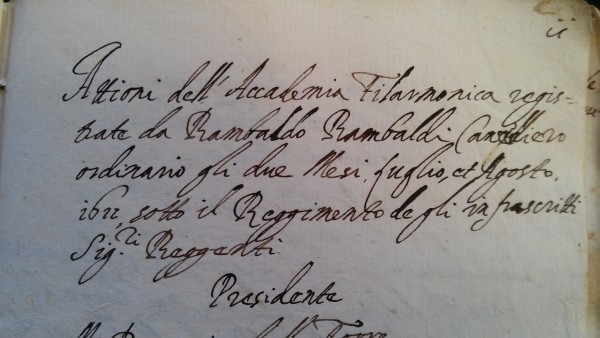 ii
Attioni dell' Accademia Filarmonica regis=
trate da Rambaldo Rambaldi Cancelliero
ordinario gli due Mesi, luglio, et Agosto,
1611, sotto il Reggimento de gli infrascritti
Sig.ri Reggenti
Presidente